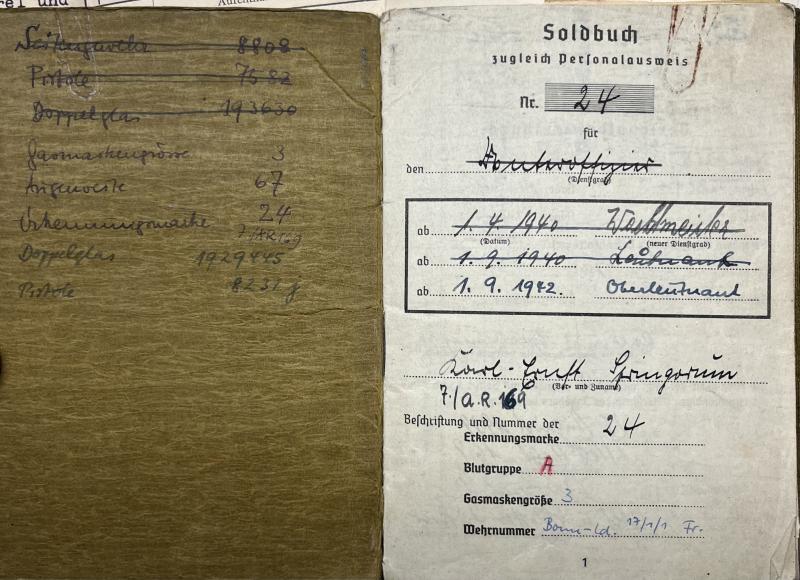 rei und
Seitengewehr 8808
Pistole 7682
Doppelglas 193630
Gasmaskengrösse 3
67
Erkennungsmarke 24
7/AR 169
Doppelglas 1929445
Pistole 8231 f
Soldbuch
zugleich Personalausweis
Nr. 24
für
den Unteroffizier
(Dienstgrad)
ab 1. 4. 1940 Wachtmeister
(Datum) (neuer Dienstgrad)
ab 1. 9. 1940 Leutnant
ab 1. 9. 1942. Oberleutnant
Karl-Ernst Springorum
(Vor- und Zuname)
7./A.R. 169
Beschriftung und Nummer der
Erkennungsmarke 24
Blutgruppe A
Gasmaskengröße 3
Wehrnummer Bonn-Ld. 17/1/1 Fr.
1